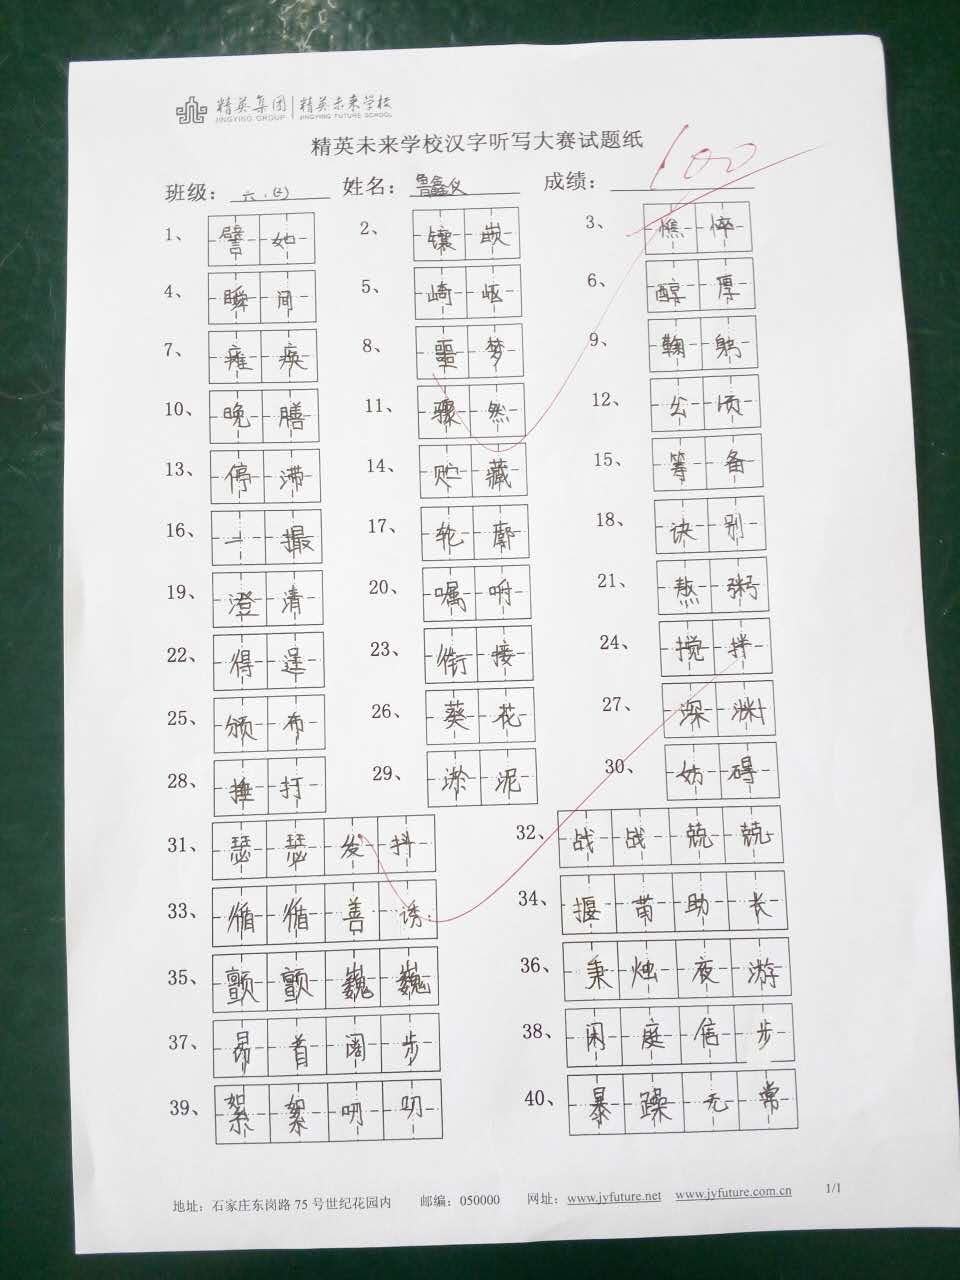 精英集团 精英未来学校
JINGYING GROUP JINGYING FUTURE SCHOOL
精英未来学校汉字听写大赛试题纸
班级： 六.(2) 姓名：鲁鑫仪 成绩：100
1、譬如 2、镶嵌 3、憔悴
4、瞬间 5、崎岖 6、醇厚
7、瘫痪 8、噩梦 9、鞠躬
10、晚膳 11、骤然 12、公顷
13、停滞 14、贮藏 15、筹备
16、一撮 17、轮廓 18、诀别
19、澄清 20、嘱咐 21、熬粥
22、得逞 23、衔接 24、搅拌
25、颁布 26、葵花 27、深渊
28、捶打 29、淤泥 30、妨碍
31、瑟瑟发抖 32、战战兢兢
33、循循善诱 34、揠苗助长
35、颤颤巍巍 36、秉烛夜游
37、昂首阔步 38、闲庭信步
39、絮絮叨叨 40、暴躁无常
地址：石家庄东岗路 75 号世纪花园内 邮编：050000 网址：www.jyfuture.net www.jyfuture.com.cn 1/1